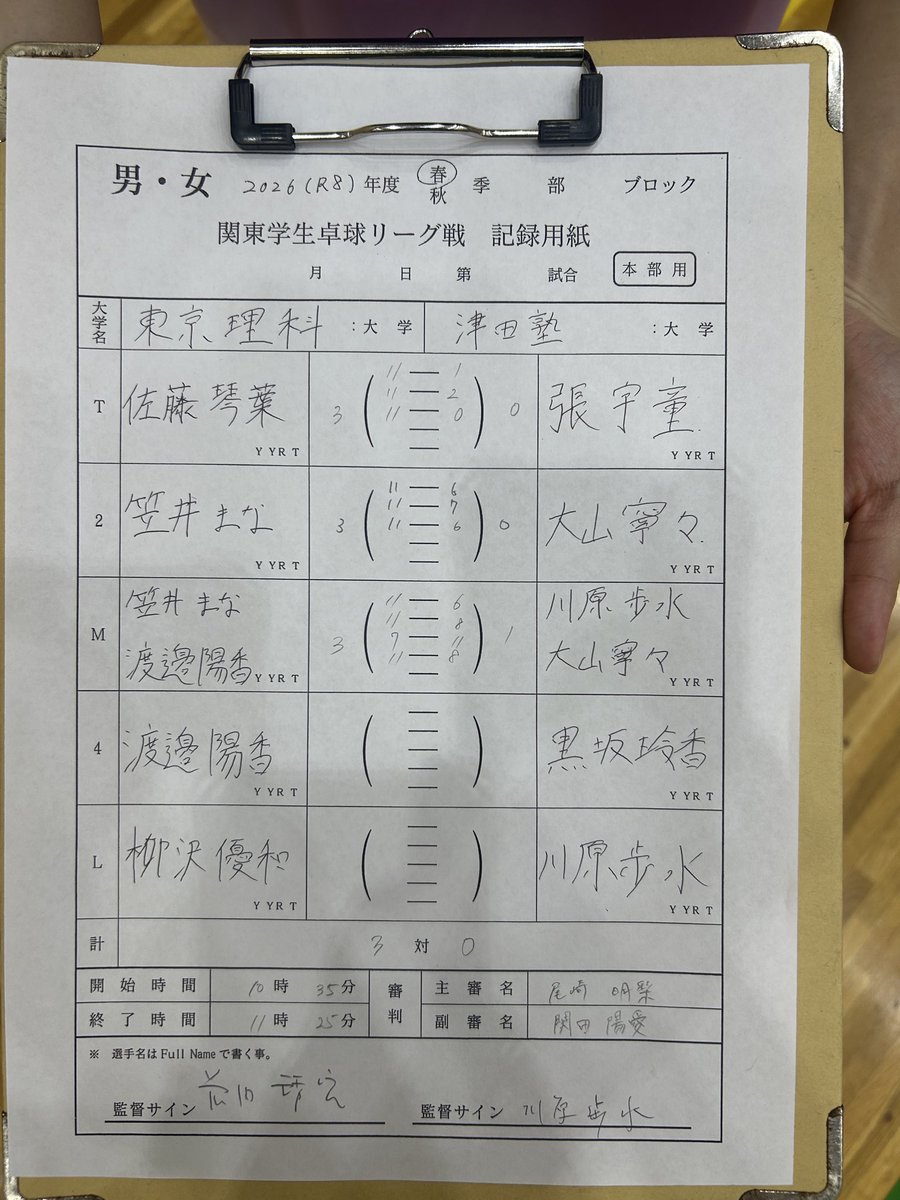 男・女 2026(R8)年度 春 秋 季 部 ブロック
関東学生卓球リーグ戦 記録用紙
月 日 第 試合 本部用
大学名 東京理科 :大学 津田塾 :大学
T 佐藤琴葉 3 ( 11 — 1 ) 0 張宇童
11 — 2
11 — 0
Y YR T Y YR T
2 笠井まな 3 ( 11 — 6 ) 0 大山寧々
11 — 7
11 — 6
Y YR T Y YR T
M 笠井まな 3 ( 11 — 6 ) 1 川原歩水
渡邉陽香 11 — 8 大山寧々
7 — 11
11 — 8
Y YR T Y YR T
4 渡邉陽香 ( ) 黒坂玲香
Y YR T Y YR T
L 柳沢優和 ( ) 川原歩水
Y YR T Y YR T
計 3 対 0
開始時間 10時 35分 審判 主審名 尾崎
終了時間 11時 25分 副審名 関田 陽愛
※ 選手名はFull Nameで書く事。
監督サイン 監督サイン 川原歩水